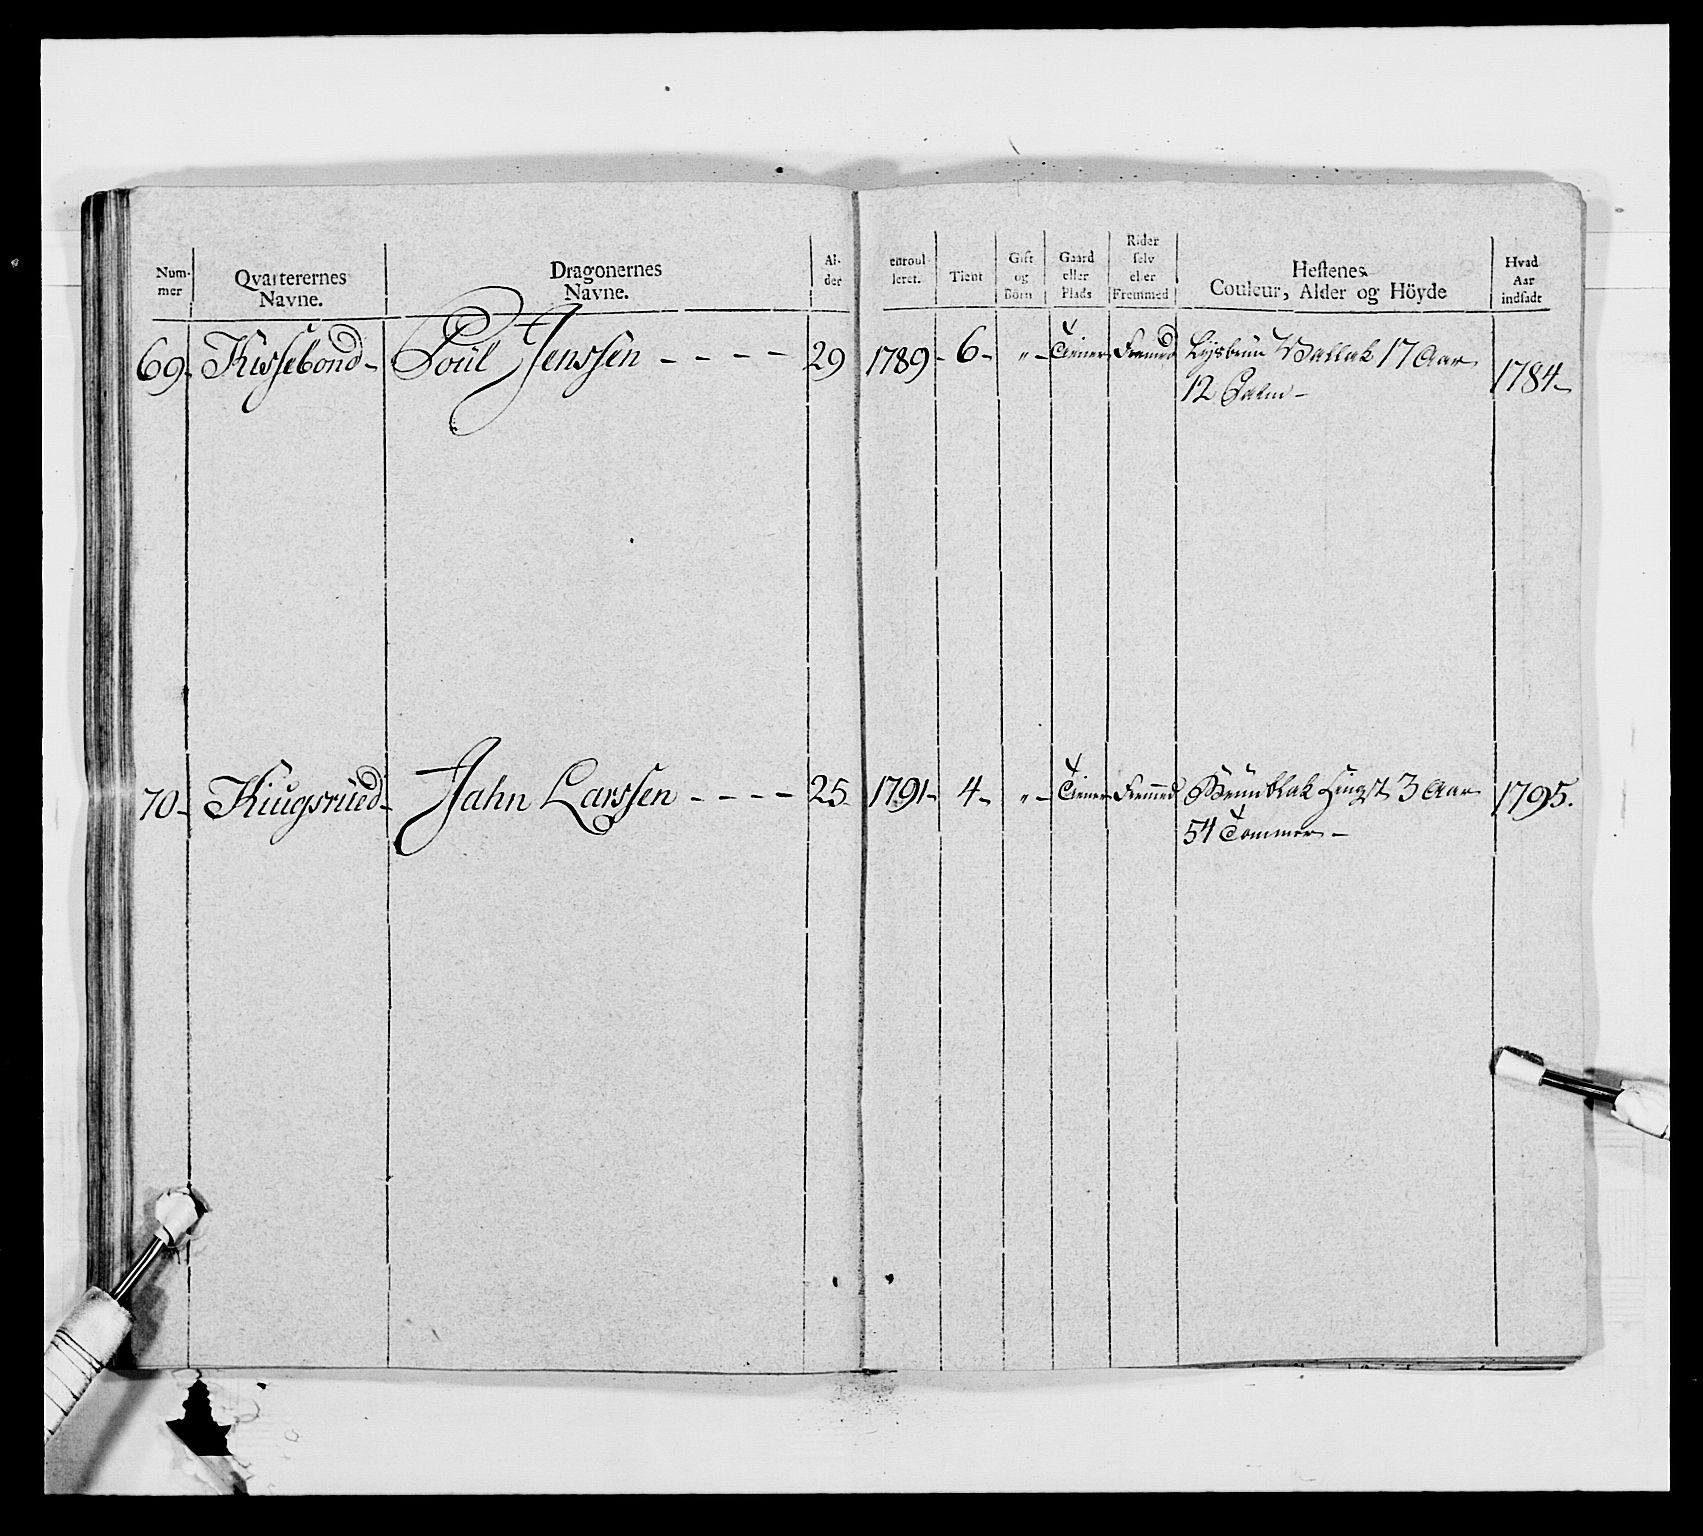 Num-
mer
Qvarterernes
Navne.
Dragonernes
Navne.
Al-
der
enroul-
leret.
Tient
Gift
og
Börn
Gaard
eller
Plads
Rider
selv
eller
Fremmed
Hestenes
Couleur, Alder og Höyde
Hvad
Aar
indsadt
69. Kissebond- Poül Jenssen - - - - 29 1789- 6- „- Tiener Fremed Lysbrün Vallak 17 Aar 1784-
12 Palm-
70- Kiugsrüed- Jahn Larssen - - - - 25 1791- 4- „- Tiener Fremmed Brün blak Hingst 3 Aar 1795.
54 Tommer-